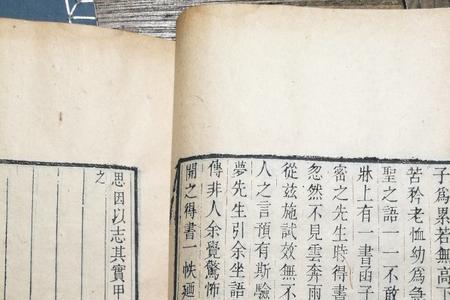 子爲累若無高下
苦矜老恤幼爲急
聖之語一一不敢
牀上有一書函子
密之先生時得書
忽然不見雲奔雨
從兹施試效無不
人之言預有斯驗
夢先生引余坐語
傳非人余覺驚怖
開之得書一帙廼
思因以志其實甲
之